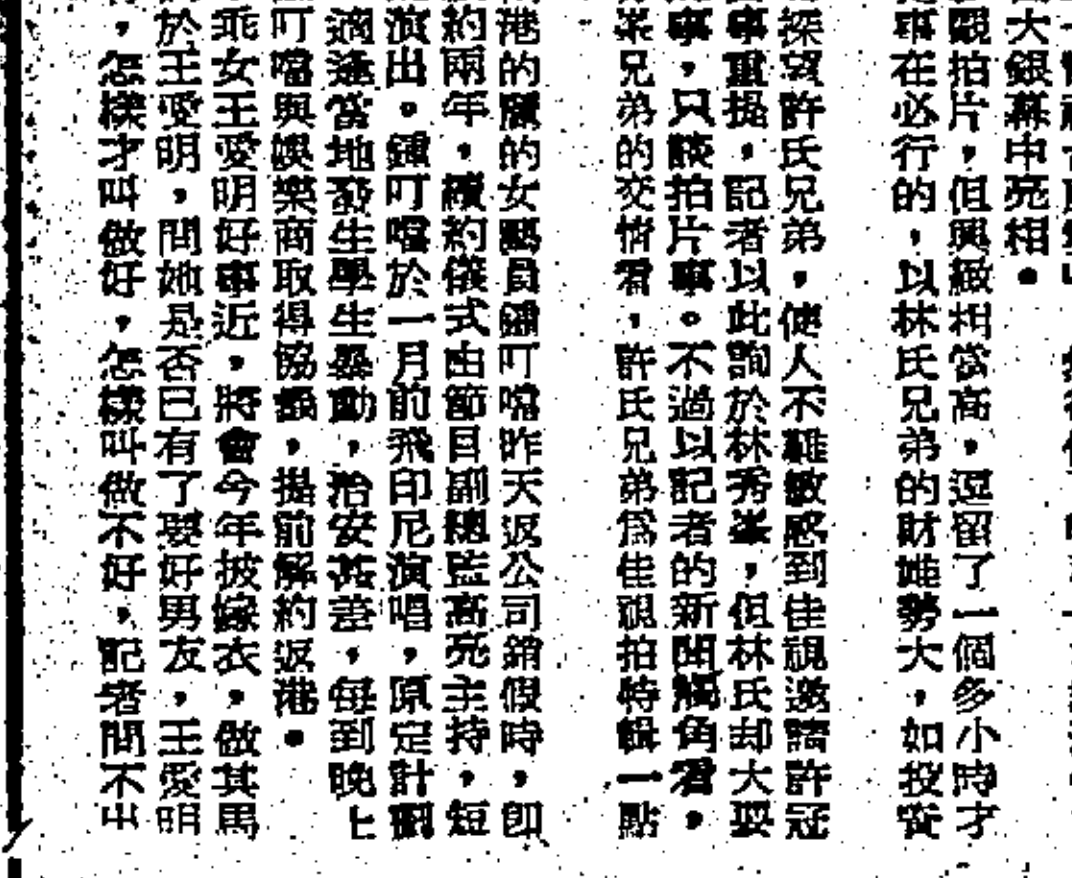 大銀幕中亮相。
觀拍片，但興緻相當高，逗留了一個多小時才
事在必行的，以林氏兄弟的財雄勢大，如投資
探望許氏兄弟，使人不難敏感到佳視邀請許冠
事重提，記者以此詢於林秀峯，但林氏却大耍
事，只談拍片事。不過以記者的新聞觸角看，
峯兄弟的交情看，許氏兄弟爲佳視拍特輯一點
港的的女藝員鍾叮噹昨天返公司銷假時，卽
約兩年，續約儀式由節目副總監高亮主持，短
演出。鍾叮噹於一月前飛印尼演唱，原定計劃
適逢當地發生學生暴動，治安甚差，每到晚上
叮噹與娛樂商取得協議，提前解約返港。
乖女王愛明好事近，將會今年披嫁衣，做其馬
於王愛明，問她是否已有了要好男友，王愛明
，怎樣才叫做好，怎樣叫做不好，記者問不出